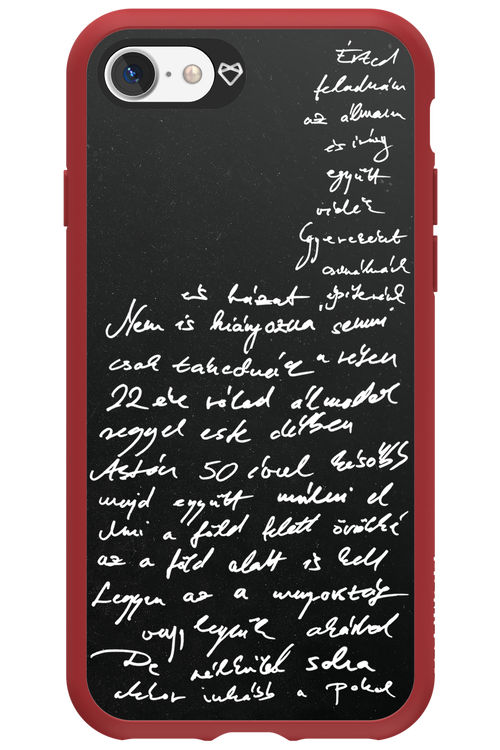 Érted
feladnám
az álmaim
és irány
együtt
vidék
Gyerekeint
csinálnánk
és házat építenénk
Nem is hiányozna semmi
csak takednék a réten
22 éve rólad álmodok
reggel este délben
Aztán 50 évvel később
majd együtt múlni el
Ami a föld felett örökké
az a föld alatt is kell
Legyen az a mennyország
vagy legyünk akárhol
De nélküled soha
akkor inkább a pokol